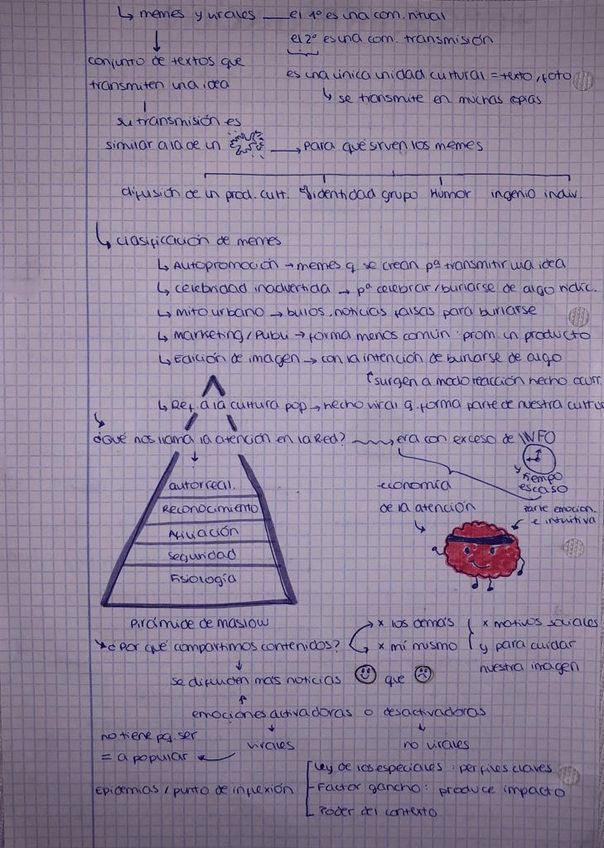 ↳ memes y virales — el 1º es una com. ritual
el 2º es una com. transmisión
conjunto de textos que
transmiten una idea
es una única unidad cultural = texto, foto
↳ se transmite en muchas copias
su transmisión es
similar a la de un → para qué sirven los memes
difusión de un prod. cult. identidad grupo Humor ingenio indiv.
↳ clasificación de memes
↳ Autopromoción → memes q se crean pª transmitir una idea
↳ celebridad inadvertida → pª celebrar/burlarse de algo ridíc.
↳ mito urbano → bulos, noticias falsas para burlarse
↳ Marketing/Publi → forma menos común: prom. un producto
↳ Edición de imagen → con la intención de burlarse de algo
surgen a modo reacción hecho ocurr.
↳ Ref. a la cultura pop → hecho viral q. forma parte de nuestra cultur
¿Qué nos llama la atención en la Red? → era con exceso de INFO
y tiempo
escaso
economía
de la atención
parte emocion.
e intuitiva
autorreal.
Reconocimiento
Afiliación
Seguridad
Fisiología
Pirámide de maslow
¿Por qué compartimos contenidos?
x los demás
x mí mismo
x motivos sociales
y para cuidar
nuestra imagen
se difunden más noticias que
emociones activadoras o desactivadoras
virales no virales
no tiene pq. ser
= a popular
Epidemias / punto de inflexión
Ley de los especiales: perfiles claves
Factor gancho: produce impacto
Poder del contexto